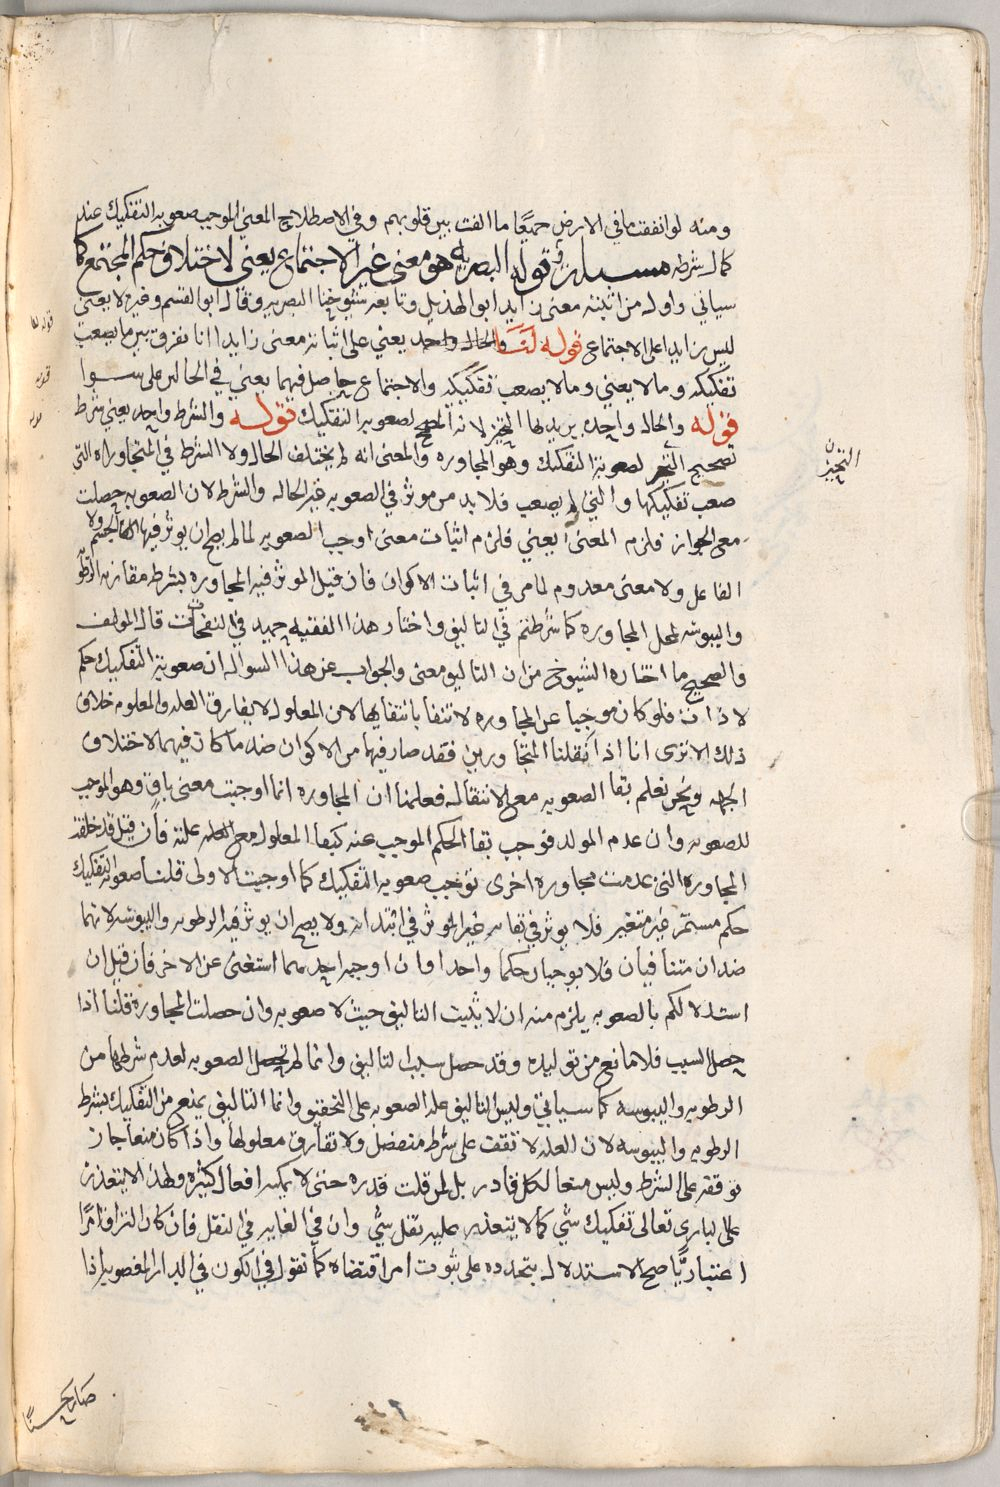 ومنه لو انفقت ما في الارض جميعا ما الفت بين قلوبهم وفي الاصطلاح المعنى الموجب صعوبة التفكيك عند
كمال شرطه مسئلة قوله البصرية هو معنى غير الاجتماع يعني لاختلاف حكم المجتمع كما
سياتي واول من اثبته معنى زايدا ابو الهذيل وتابعه شيوخنا البصرية وقال ابو القسم وغيره لا يعني
ليس زايدا على الاجتماع قوله لنا والحال واحد يعني على اثباته معنى زايدا انا نفرق بين ما يصعب
تفكيكه وما لا يعني وما لا يصعب تفكيكه والاجتماع حاصل فيهما يعني في الحالين على سوا
قوله والحال واحده يريد بها التحيز لانه المصحح لصعوبة التفكيك قوله والشرط واحد يعني شرط
تصحيح التحيز لصعوبة التفكيك وهو المجاورة والمعنى انه لم يختلف الحال ولا الشرط في المتجاورات التي
صعب تفكيكها والتي لم يصعب فلا بد من موثر في الصعوبه غير الحاله والشرط لان الصعوبه حصلت
مع الجواز فلزم المعنى يعني فلزم اثبات معنى اوجب الصعوبه لما لم يصح ان يوثر فيها الجسم ولا
الفاعل ولا معنى معدوم لما مر في اثبات الاكوان فان قيل الموثر فيه المجاورة بشرط مقارنة الرطوبه
واليبوسه لمحل المجاورة كما شرطتم في التاليف واختار هذا الفقيه حميد في النفحات قال المولف
والصحيح ما اختاره الشيوخ من ان التاليف معنى والجواب عن هذا السوال ان صعوبة التفكيك حكم
لا ذات فلو كان موجبا عن المجاوره لانتفا بانتفايها لان المعلول لا يفارق العله والمعلوم خلاف
ذلك الا ترى انا اذا نقلنا المتجاورين فقد صار فيهما من الاكوان ضد ما كان فيهما لاختلاف
الجهه ونحن نعلم بقا الصعوبه مع الانتقال فعلمنا ان المجاوره انما اوجبت معنى باق وهو الموجب
للصعوبه وان عدم المولد فوجب بقا الحكم الموجب عنه كبقا المعلول مع العله علته فان قيل قد خلفت
المجاوره التي عدمت مجاوره اخرى توجب صعوبة التفكيك كما اوجبت الاولى قلنا صعوبة التفكيك
حكم مستمر غير متغير فلا يوثر في بقايه غير الموثر في ابتدايه ولا يصح ان يوثر فيه الرطوبه واليبوسه لانهما
ضدان متنافيان فلا يوجبان حكما واحدا وان اوجبه احدهما استغنى عن الاخر فان قيل ان
استدلالكم بالصعوبه يلزم منه ان لا يثبت التاليف حيث لا صعوبه وان حصلت المجاورة قلنا اذا
حصل السبب فلا مانع من توليده وقد حصل سبب التاليف وانما لم تحصل الصعوبه لعدم شرطها من
الرطوبه واليبوسه كما سياتي وليس التاليف عله الصعوبه على التحقيق وانما التاليف يمنع من التفكيك بشرط
الرطوبه واليبوسه لان العله لا تقف على شرط منفصل ولا تفارق معلولها واذا كان منعا جاز
توقفه على الشرط وليس منعا لكل قادر بل لمن قلت قدره حتى لا يمكنه افعال كثيره ولهذا لا يتعذر
على الباري تعالى تفكيك شي كما لا يتعذر عليه نقل شي وان في الغايه في الثقل فان كان التزاق امرا
اعتباريا صح الاستدلال بتجدده على ثبوت امر اقتضاه كما نقول في الكون في الدار المغصوبه اذا
التحيز
صار حسنا